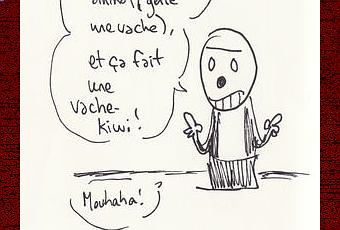 une vache),
et ça fait
une
vache-
kiwi !
Mouhaha !